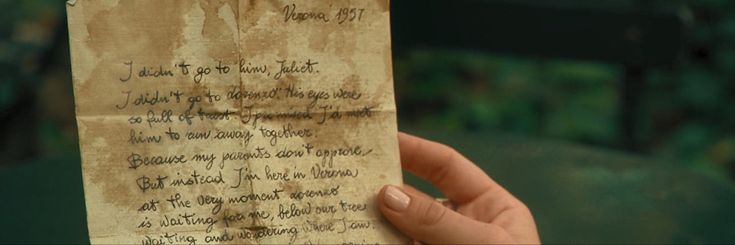 Verona 1957
I didn't go to him, Juliet.
I didn't go to Lorenzo. His eyes were
so full of trust. I promised I'd meet
him to run away together.
Because my parents don't approve
But instead I'm here in Verona
at the very moment Lorenzo
is waiting for me, below our tree
waiting and wondering where I am.